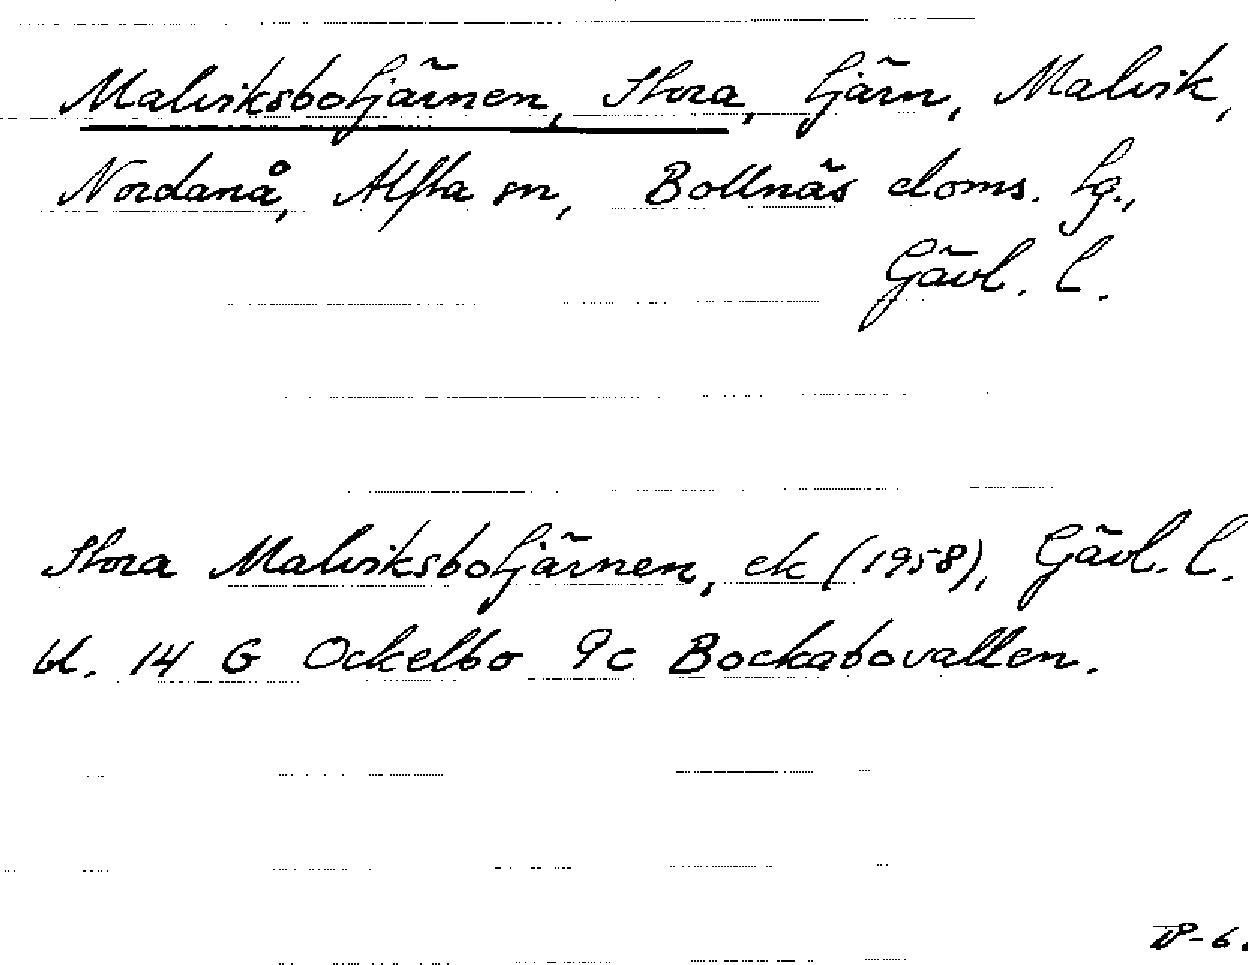 Malviksbotjärnen, Stora, tjärn, Malvik,
Nordanå, Alfta sn, Bollnäs doms. tg.,
Gävl. l.
Stora Malviksbotjärnen, ek (1958), Gävl. l.
bl. 14 G Ockelbo 9c Bockabovallen.